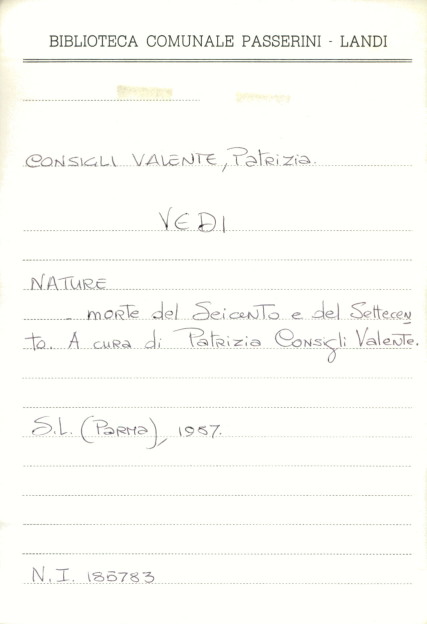 BIBLIOTECA COMUNALE PASSERINI - LANDI
CONSIGLI VALENTE, Patrizia.
VEDI
NATURE
- morte del Seicento e del Settecen
to. A cura di Patrizia Consigli Valente.
S.L. (Parma), 1987.
N.I. 185783